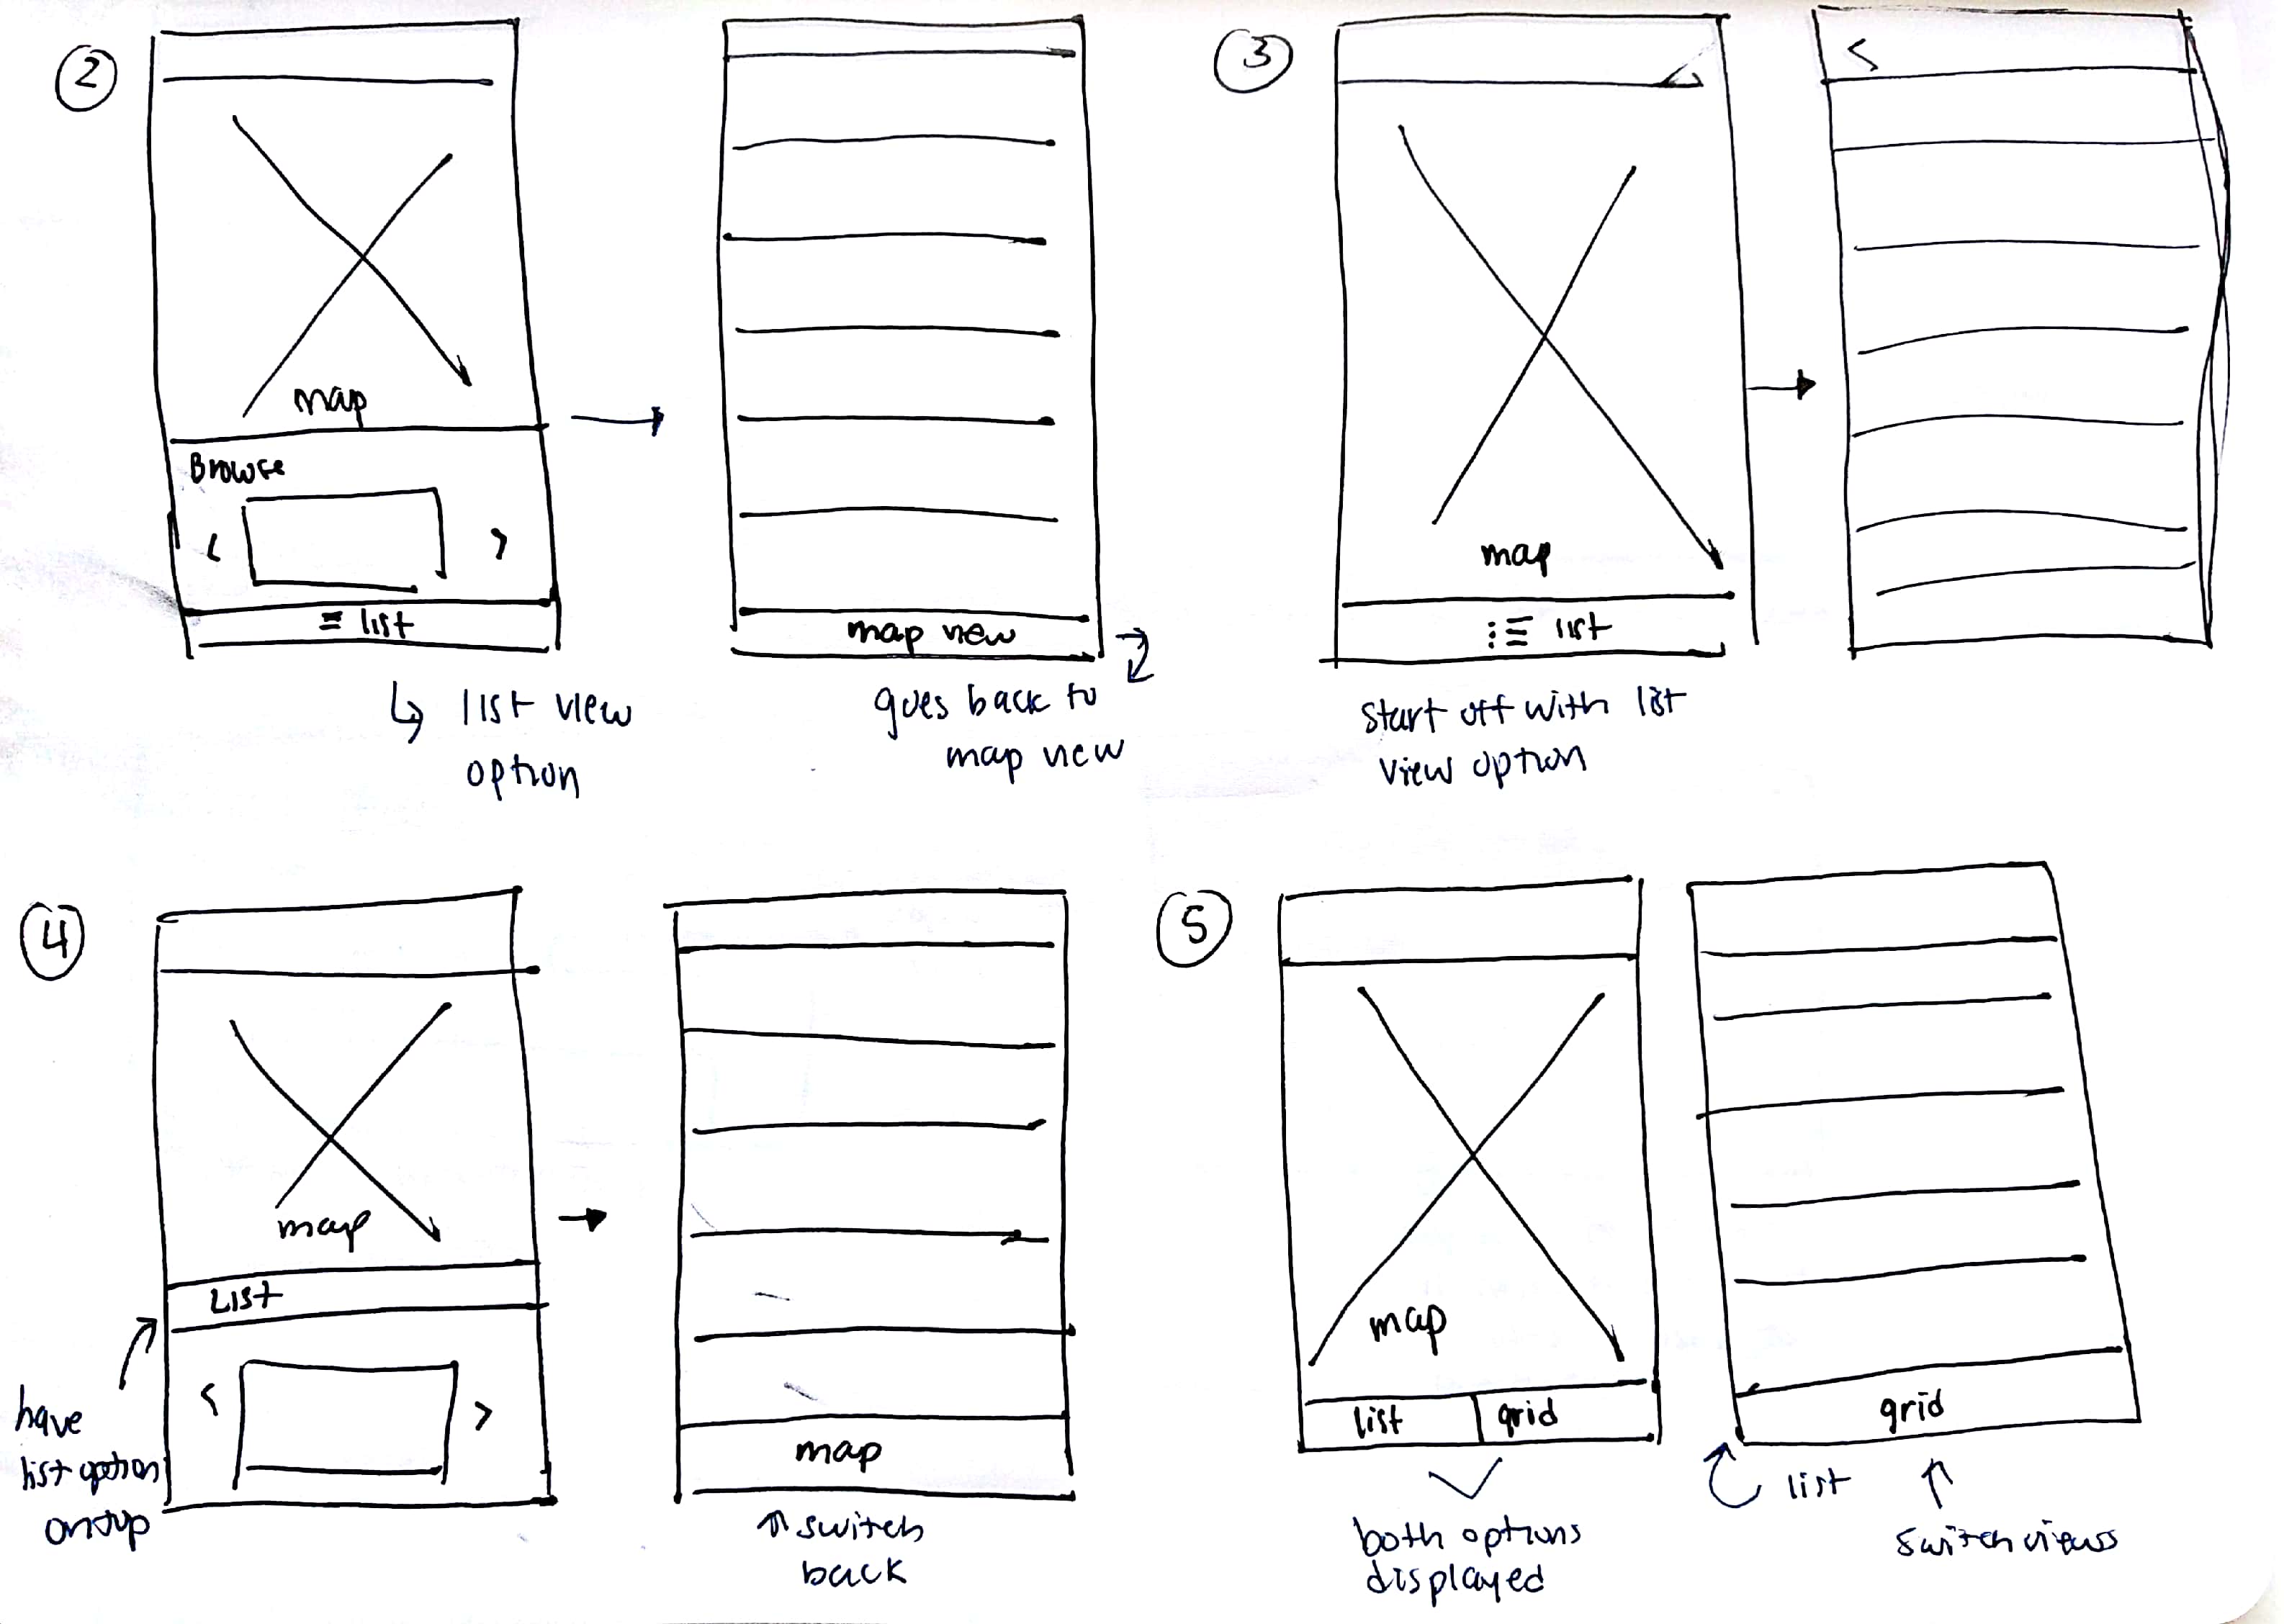 2
map
Browse
< >
≡ list
↳ list view
option
map view
goes back to
map view
3
map
⋮≡ list
start off with list
view option
<
4
map
List
< >
have
list option
on top
map
↑ switch
back
5
map
list grid
both options
displayed
grid
list
switch views